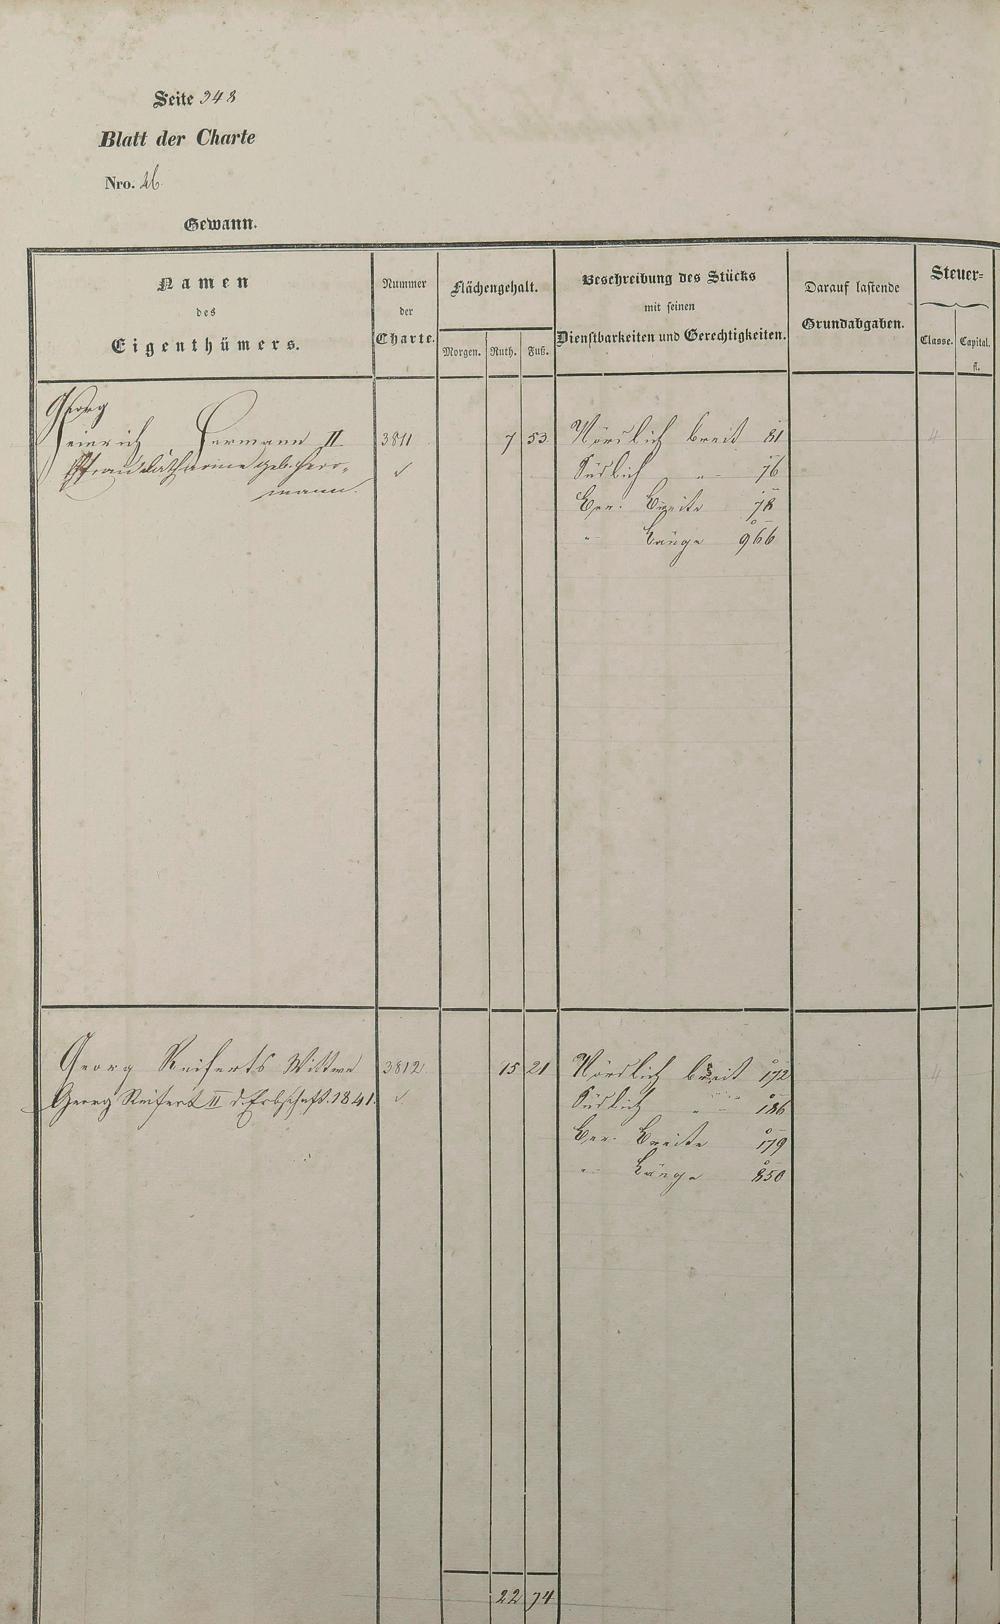 Seite 948
Blatt der Charte
Nro. 26
Gewann.
Namen
des
Eigenthümers.
Nummer
der
Charte.
Flächengehalt.
Morgen. Ruth. Fuß.
Beschreibung des Stücks
mit seinen
Dienstbarkeiten und Gerechtigkeiten.
Darauf lastende
Grundabgaben.
Steuer=
Classe. Capital.
fl.
Georg
Heinrich Hermann II 3811 7 53 Nördlich breit 81 4
Frau Katharine geb. Herr=
mann.
Südlich " 76
Ger. Breite 78
" Länge 966
Georg Reiferts Wittwe 3812 15 21 Nördlich breit 172 4
Georg Reifert II d. Erbschaft. 1841.
Südlich " 186
Ger. Breite 179
" Länge 850
22 74